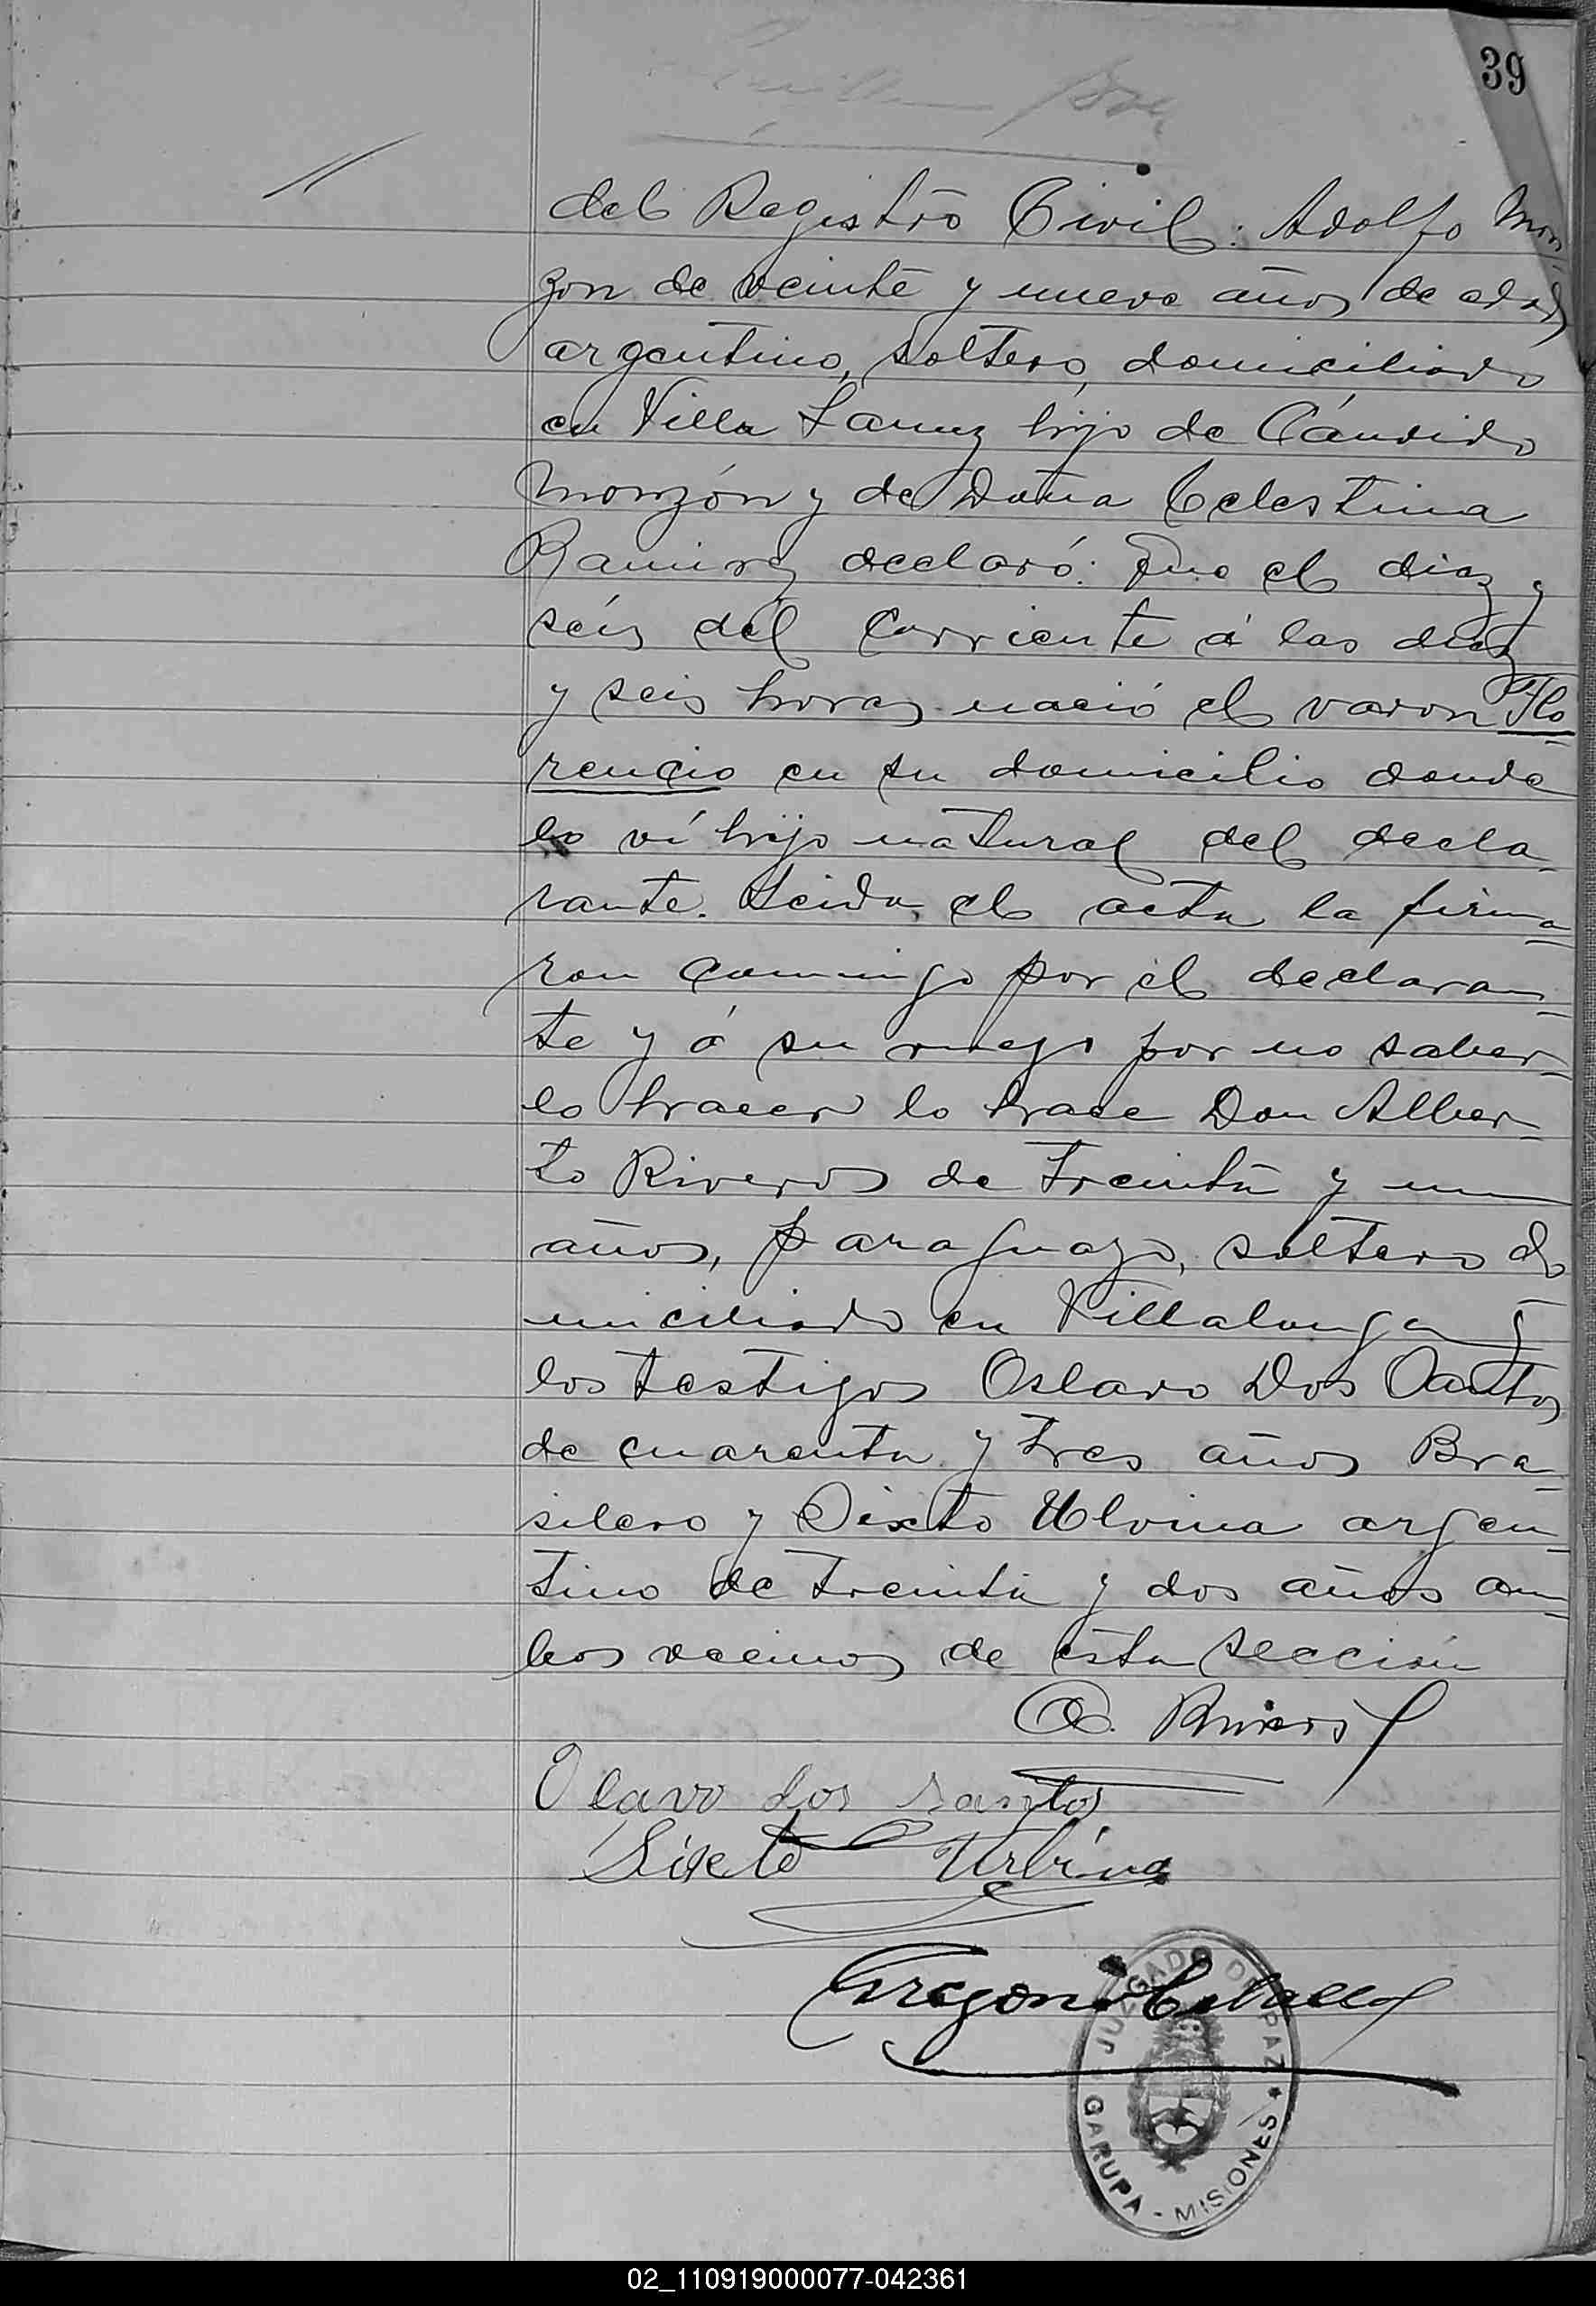 39
del Registro Civil: Adolfo Mon
zon de veinte y nueve años de edad
argentino, soltero, domiciliado
en Villa Lanuz hijo de Cándido
Monzón y de Doña Celestina
Ramirez declaró: Que el diez y
séis del Corriente á las diez
y seis horas nació el varon Flo-
rencio en su domicilio donde
lo ví hijo natural del decla-
rante. Leida el acta la firma-
ron conmigo por el declaran-
te y á su ruego por no saber-
lo hacer lo hace Don Alber-
to Riveros de treinta y un
años, paraguayo, soltero do
miciliado en Villalonga y
los testigos Oslavo Dos Santos
de cuarenta y tres años Bra-
silero y Sixto Ulvina argen-
tino de treinta y dos años am-
bos vecinos de esta sección
A. Riveros
Olavo dos santos
Sixto Urbina
Gregorio Ceballos
JUZGADO DE PAZ
GARUPA - MISIONES
02_110919000077-042361